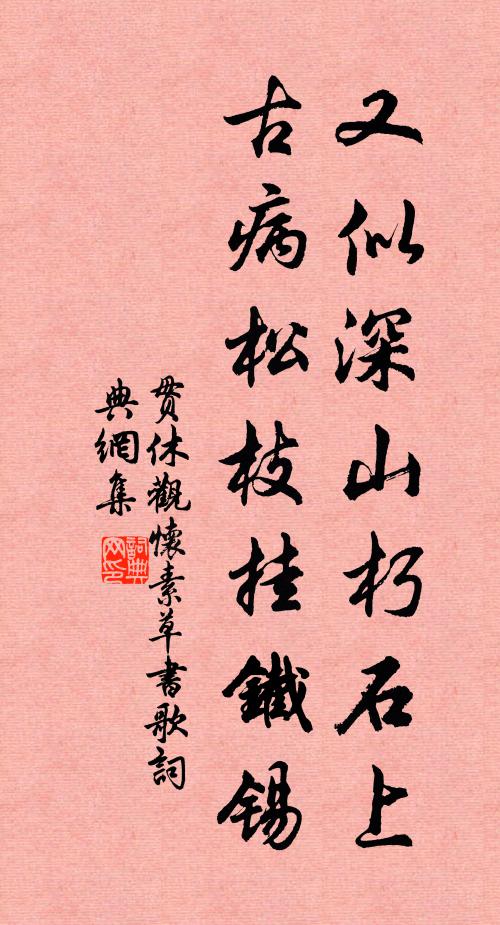 又似深山朽石上
古病松枝挂鐵錫
貫休觀懷素草書歌詞
典網集
詞典網印